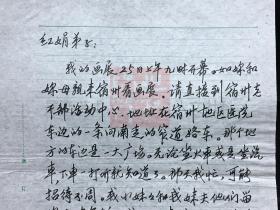 红娟弟子:
我的画展25日上午九时开幕。如妹和
妹母亲来宿州看画展,请直接到宿州老
干部活动中心,地址在宿州地区医院
东边的一条向南走的窄道路东。那个地
方的东边是一大广场。无论坐火车或是坐汽
车下车一打听就知道了。那天我忙,可能
招待不周。我小妹和我妹夫他们留